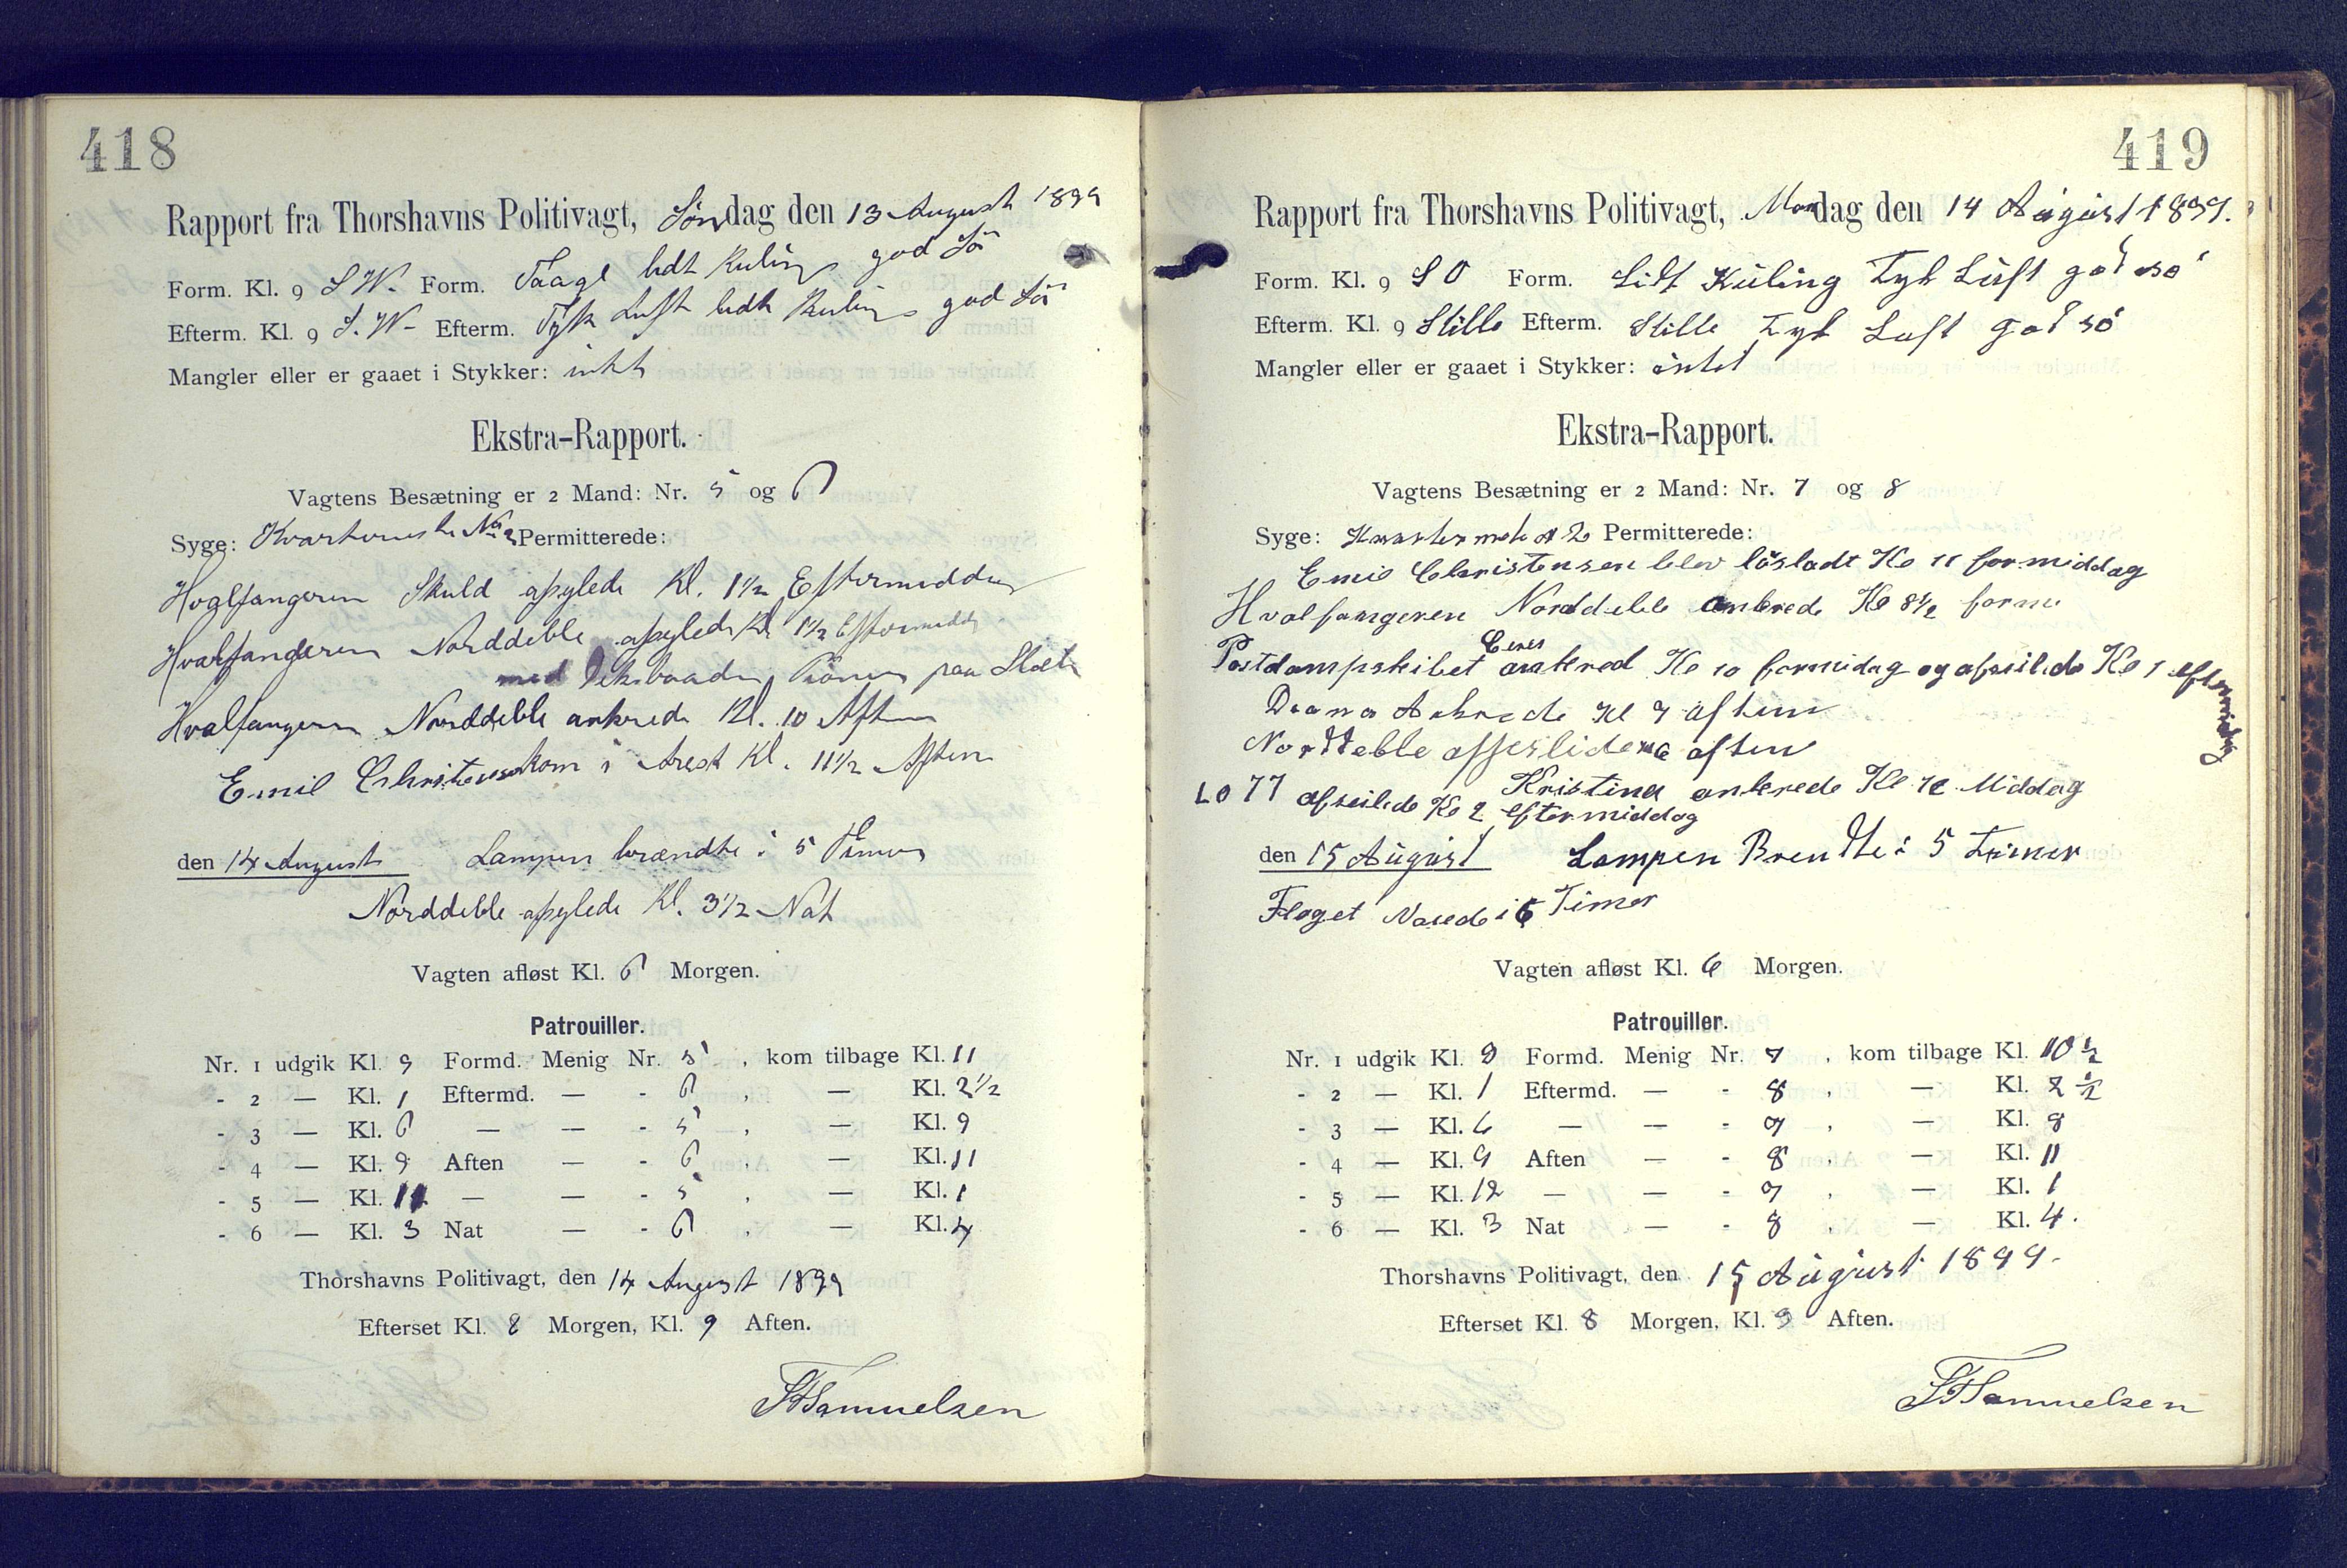 418
Rapport fra Thorshavns Politivagt, Søndag den 13 August 1899
Form. Kl. 9 S W. Form. Taage lidt Kuling god Sö
Efterm. Kl. 9 S. W. Efterm. Tyk Luft lidt Kuling god Sö
Mangler eller er gaaet i Stykker: intet
Ekstra-Rapport.
Vagtens Besætning er 2 Mand: Nr. 5 og 6
Syge: No 2 Permitterede:
Hvalfangeren Skuld afsejlede Kl. 1 1/2 Eftermiddag
Hvalfangeren Norddeble afsejlede Kl 1 1/2 Eftermidd
med paa Slæb
Hvalfangeren Norddeble ankrede Kl. 10 Aften
Emil Christensen kom i Arest Kl. 11 1/2 Aften
den 14 August Lampen brændte i 5 Timer
Norddeble afsejlede Kl. 3 1/2 Nat
Vagten afløst Kl. 6 Morgen.
Patrouiller.
Nr. 1 udgik Kl. 9 Formd. Menig Nr. 5 , kom tilbage Kl. 11
- 2 — Kl. 1 Eftermd. — - 6 , — Kl. 2 1/2
- 3 — Kl. 6 — — - 5 , — Kl. 9
- 4 — Kl. 9 Aften — - 6 , — Kl. 11
- 5 — Kl. 11 — — - 5 , — Kl. 1
- 6 — Kl. 3 Nat — - 6 , — Kl. 4
Thorshavns Politivagt, den 14 August 1899
Efterset Kl. 8 Morgen, Kl. 9 Aften.
Samuelsen
419
Rapport fra Thorshavns Politivagt, Mandag den 14 August 1899.
Form. Kl. 9 S O Form. Lidt Küling Tyk Lüft god sö
Efterm. Kl. 9 Stille Efterm. Stille Tyk Luft god sö
Mangler eller er gaaet i Stykker: intet
Ekstra-Rapport.
Vagtens Besætning er 2 Mand: Nr. 7 og 8
Syge: 2 Permitterede:
Emil Christensen blev lösladt Kl 11 formiddag
Hvalfangeren Norddeble ankrede Kl 8 1/2 form
Ceres
Postdampskibet ankred Kl 10 formidag og afseilede Kl 1 eftermidag
Diana Ankrede Kl 7 aften
Norddeble afseilede aften
LO 77 afseilede Kl 2 eftermiddag Kristina ankrede Kl 12 Middag
den 15 August Lampen Brendte i 5 Timer
Flaget Vaiede i 6 Timer
Vagten afløst Kl. 6 Morgen.
Patrouiller.
Nr. 1 udgik Kl. 9 Formd. Menig Nr. 7 , kom tilbage Kl. 10 1/2
- 2 — Kl. 1 Eftermd. — - 8 , — Kl. 2 1/2
- 3 — Kl. 6 — — - 7 , — Kl. 8
- 4 — Kl. 9 Aften — - 8 , — Kl. 11
- 5 — Kl. 12 — — - 7 , — Kl. 1
- 6 — Kl. 3 Nat — - 8 , — Kl. 4.
Thorshavns Politivagt, den 15 August 1899.
Efterset Kl. 8 Morgen, Kl. 9 Aften.
Samuelsen